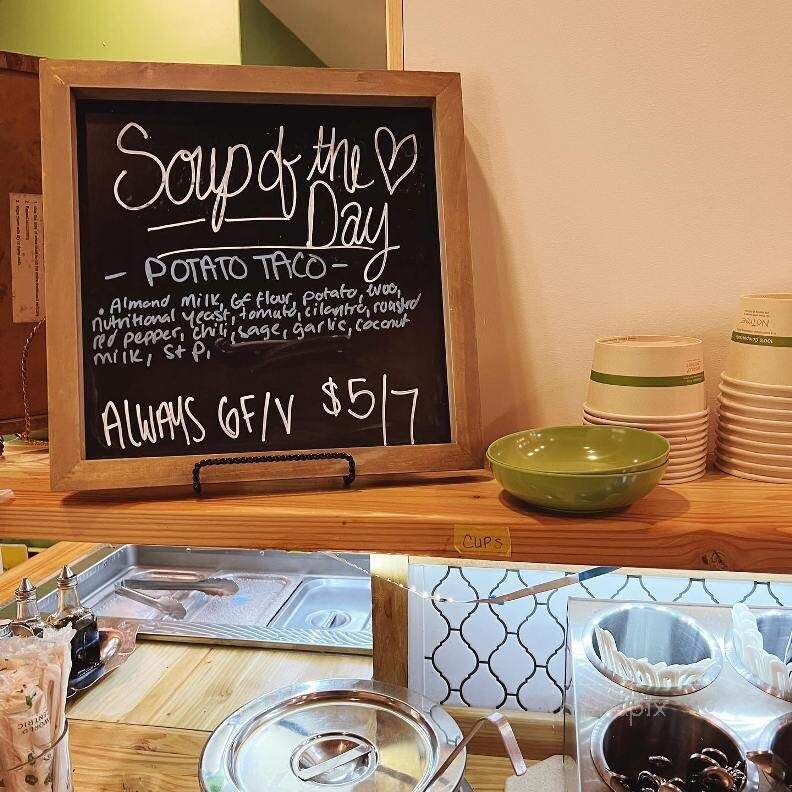 Soup of the
Day
- POTATO TACO -
. Almond milk, GF flour, potato, evoo,
nutritional yeast, tomato, cilantro, roasted
red pepper, chili, sage, garlic, coconut
milk, S+P.
ALWAYS GF/V $5/7
CUPS